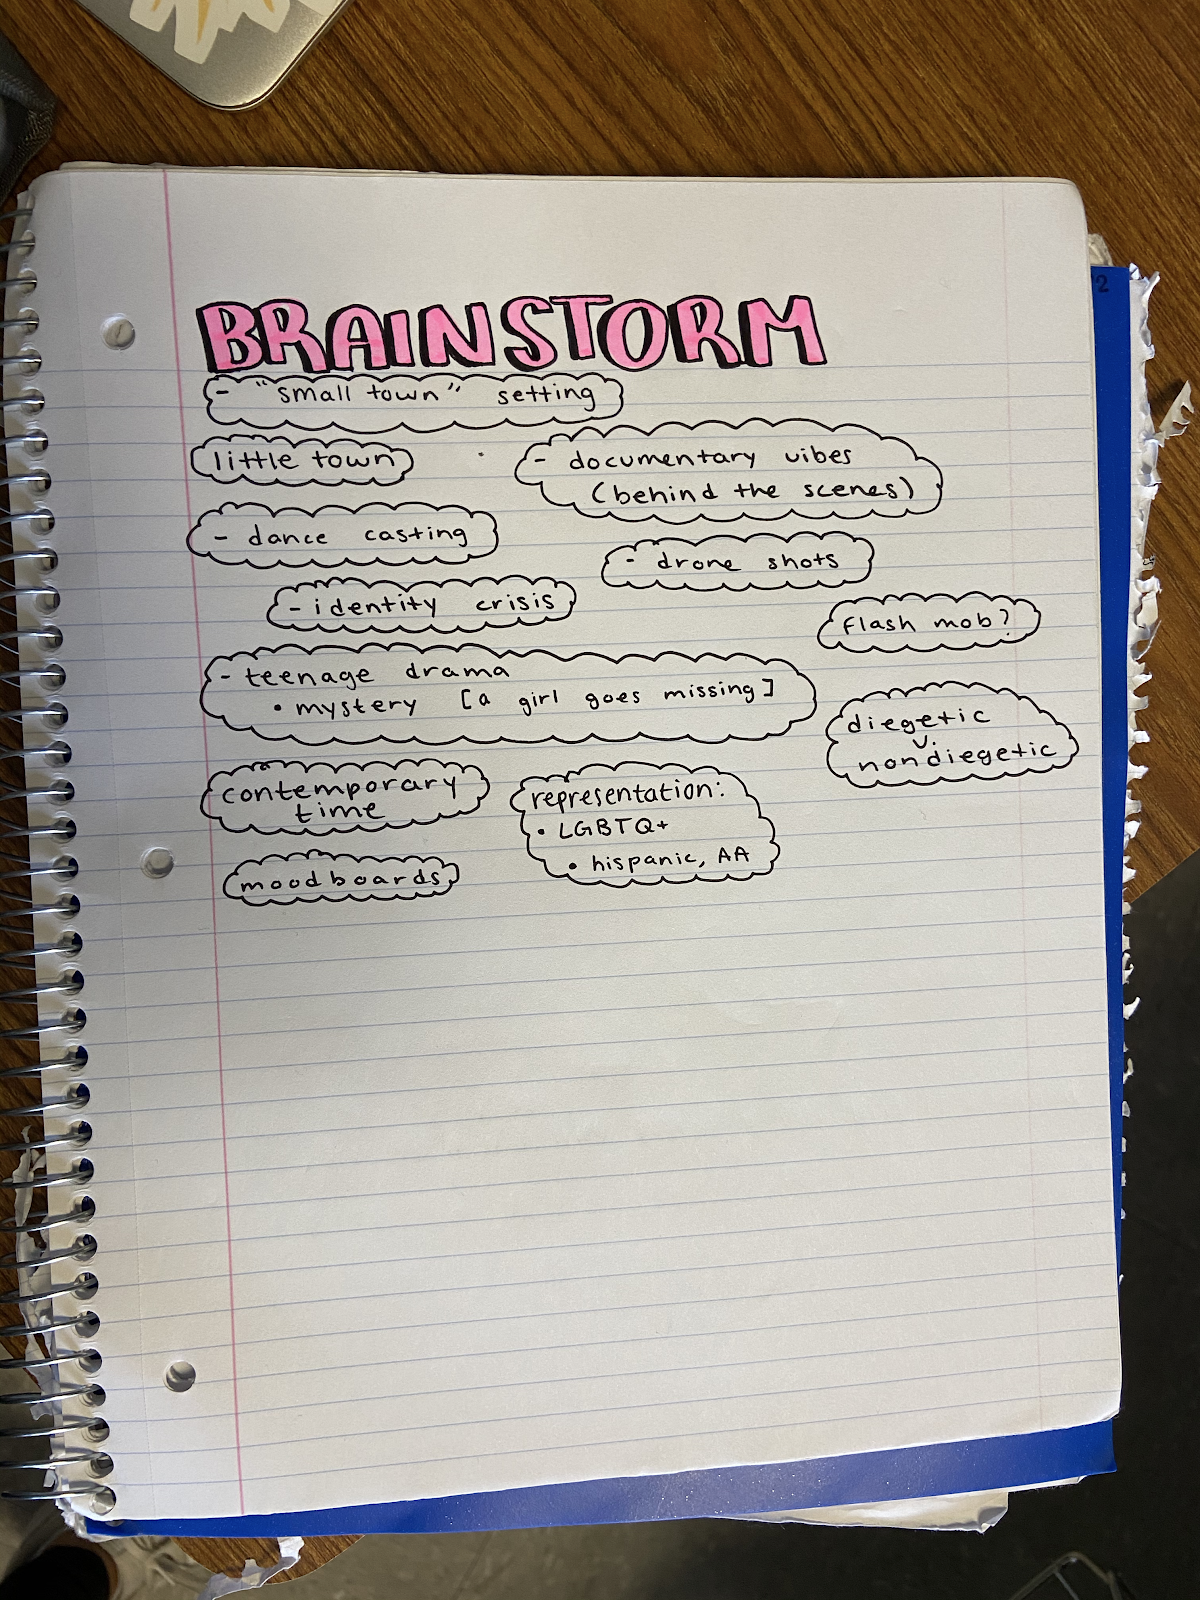 BRAINSTORM
- "small town" setting
little town
- documentary vibes
(behind the scenes)
- dance casting
- drone shots
- identity crisis
flash mob?
- teenage drama
• mystery [a girl goes missing]
diegetic
nondiegetic
contemporary
time
representation:
• LGBTQ+
• hispanic, AA
moodboards